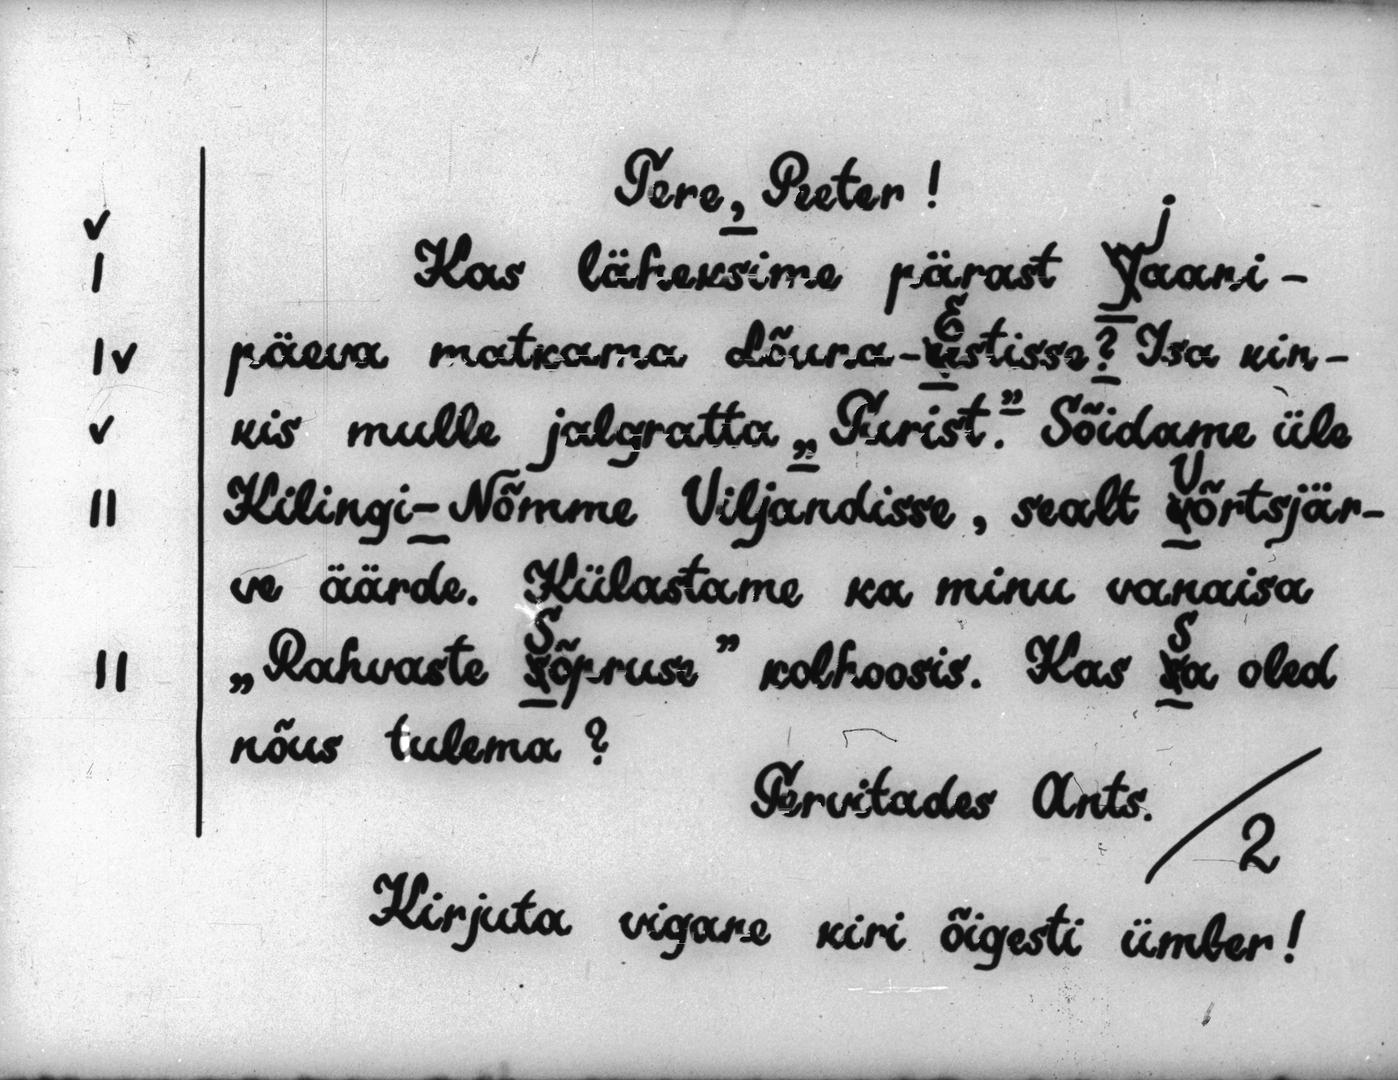 Tere, Peeter!
v
j
I Kas läheksime pärast Jaani-
E
Iv päeva matkama Lõuna-eistisse? Isa kin-
v kis mulle jalgratta „Turist.” Sõidame üle
V
II Kilingi-Nõmme Viljandisse, sealt võrtsjär-
ve äärde. Külastame ka minu vanaisa
S S
II „Rahvaste sõpruse” kolhoosis. Kas sa oled
nõus tulema?
Tervitades Ants.
2
Kirjuta vigane kiri õigesti ümber!